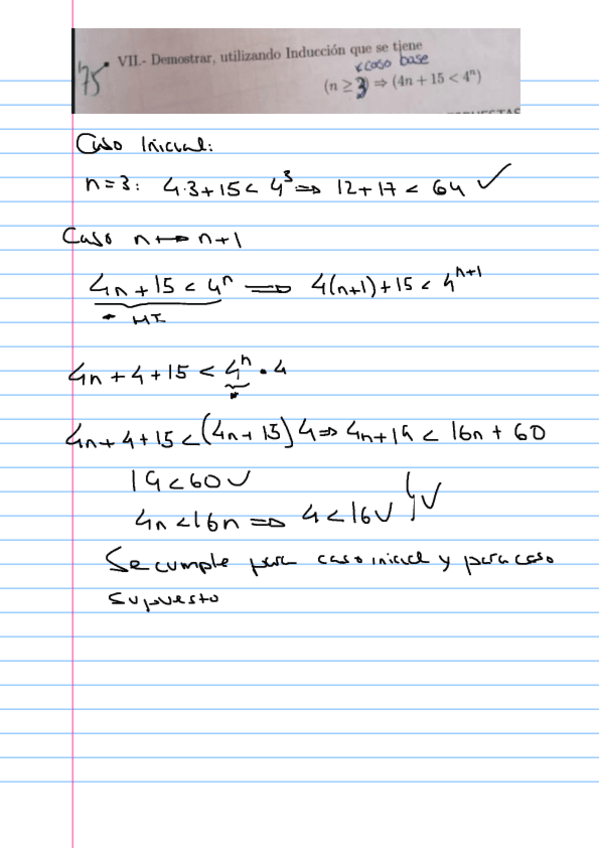 75
VII.- Demostrar, utilizando Inducción que se tiene
caso base
(n ≥ 3) ⇒ (4n + 15 < 4ⁿ)
Caso Inicial:
n=3: 4·3+15 < 4³ ⇒ 12+17 < 64 ✓
Caso n ↦ n+1
4n + 15 < 4ⁿ ⇒ 4(n+1)+15 < 4ⁿ⁺¹
* HI
4n + 4 + 15 < 4ⁿ · 4
*
4n + 4 + 15 < (4n + 15) 4 ⇒ 4n + 19 < 16n + 60
19 < 60 ✓
4n < 16n ⇒ 4 < 16 ✓ } ✓
Se cumple para caso inicial y para caso
supuesto